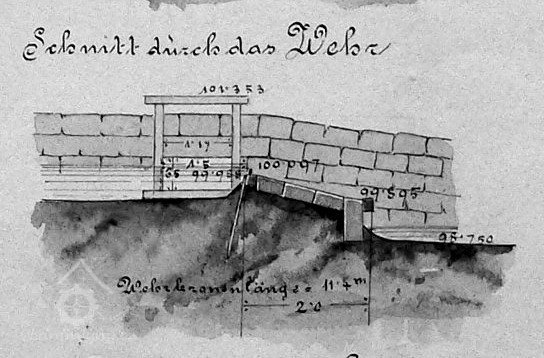 Schnitt durch das Wehr
101·353
1·19
1·5
100·097
65
99·895
Wehrkronenlänge = 11·4m
2·0